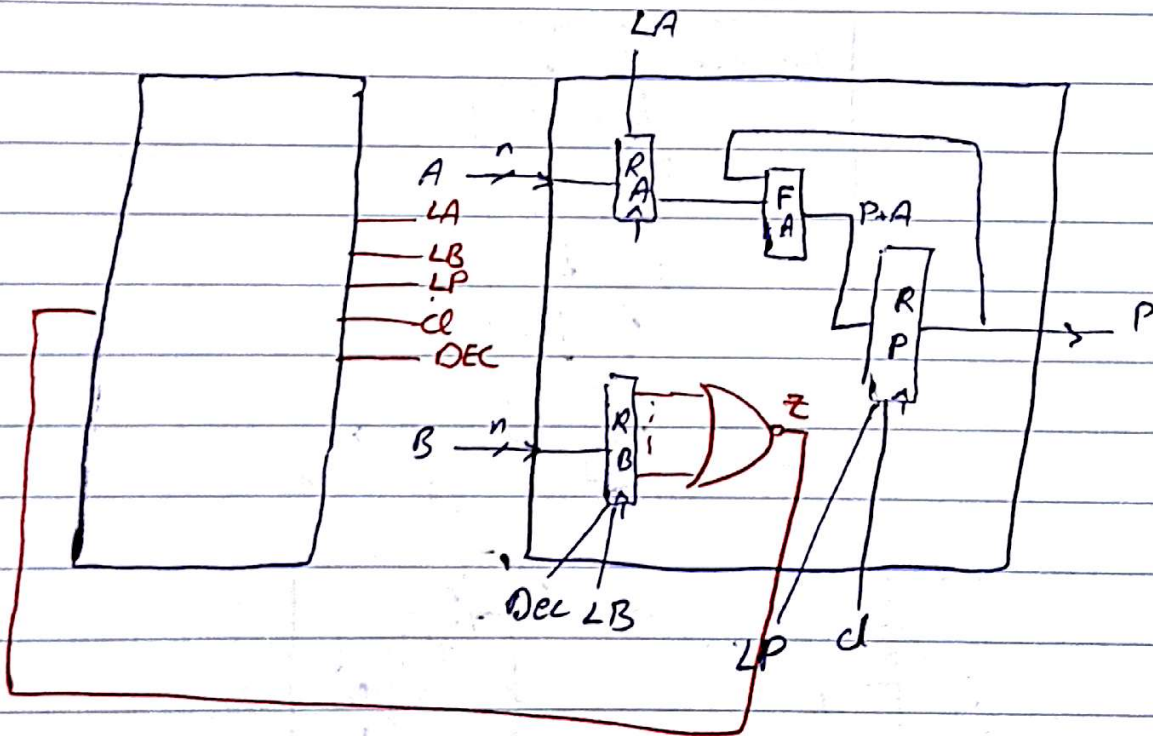 LA
n
A
RA
FA
P+A
LA
LB
LP
cl
DEC
RP
P
n
B
RB
z
Dec LB
LP
cl